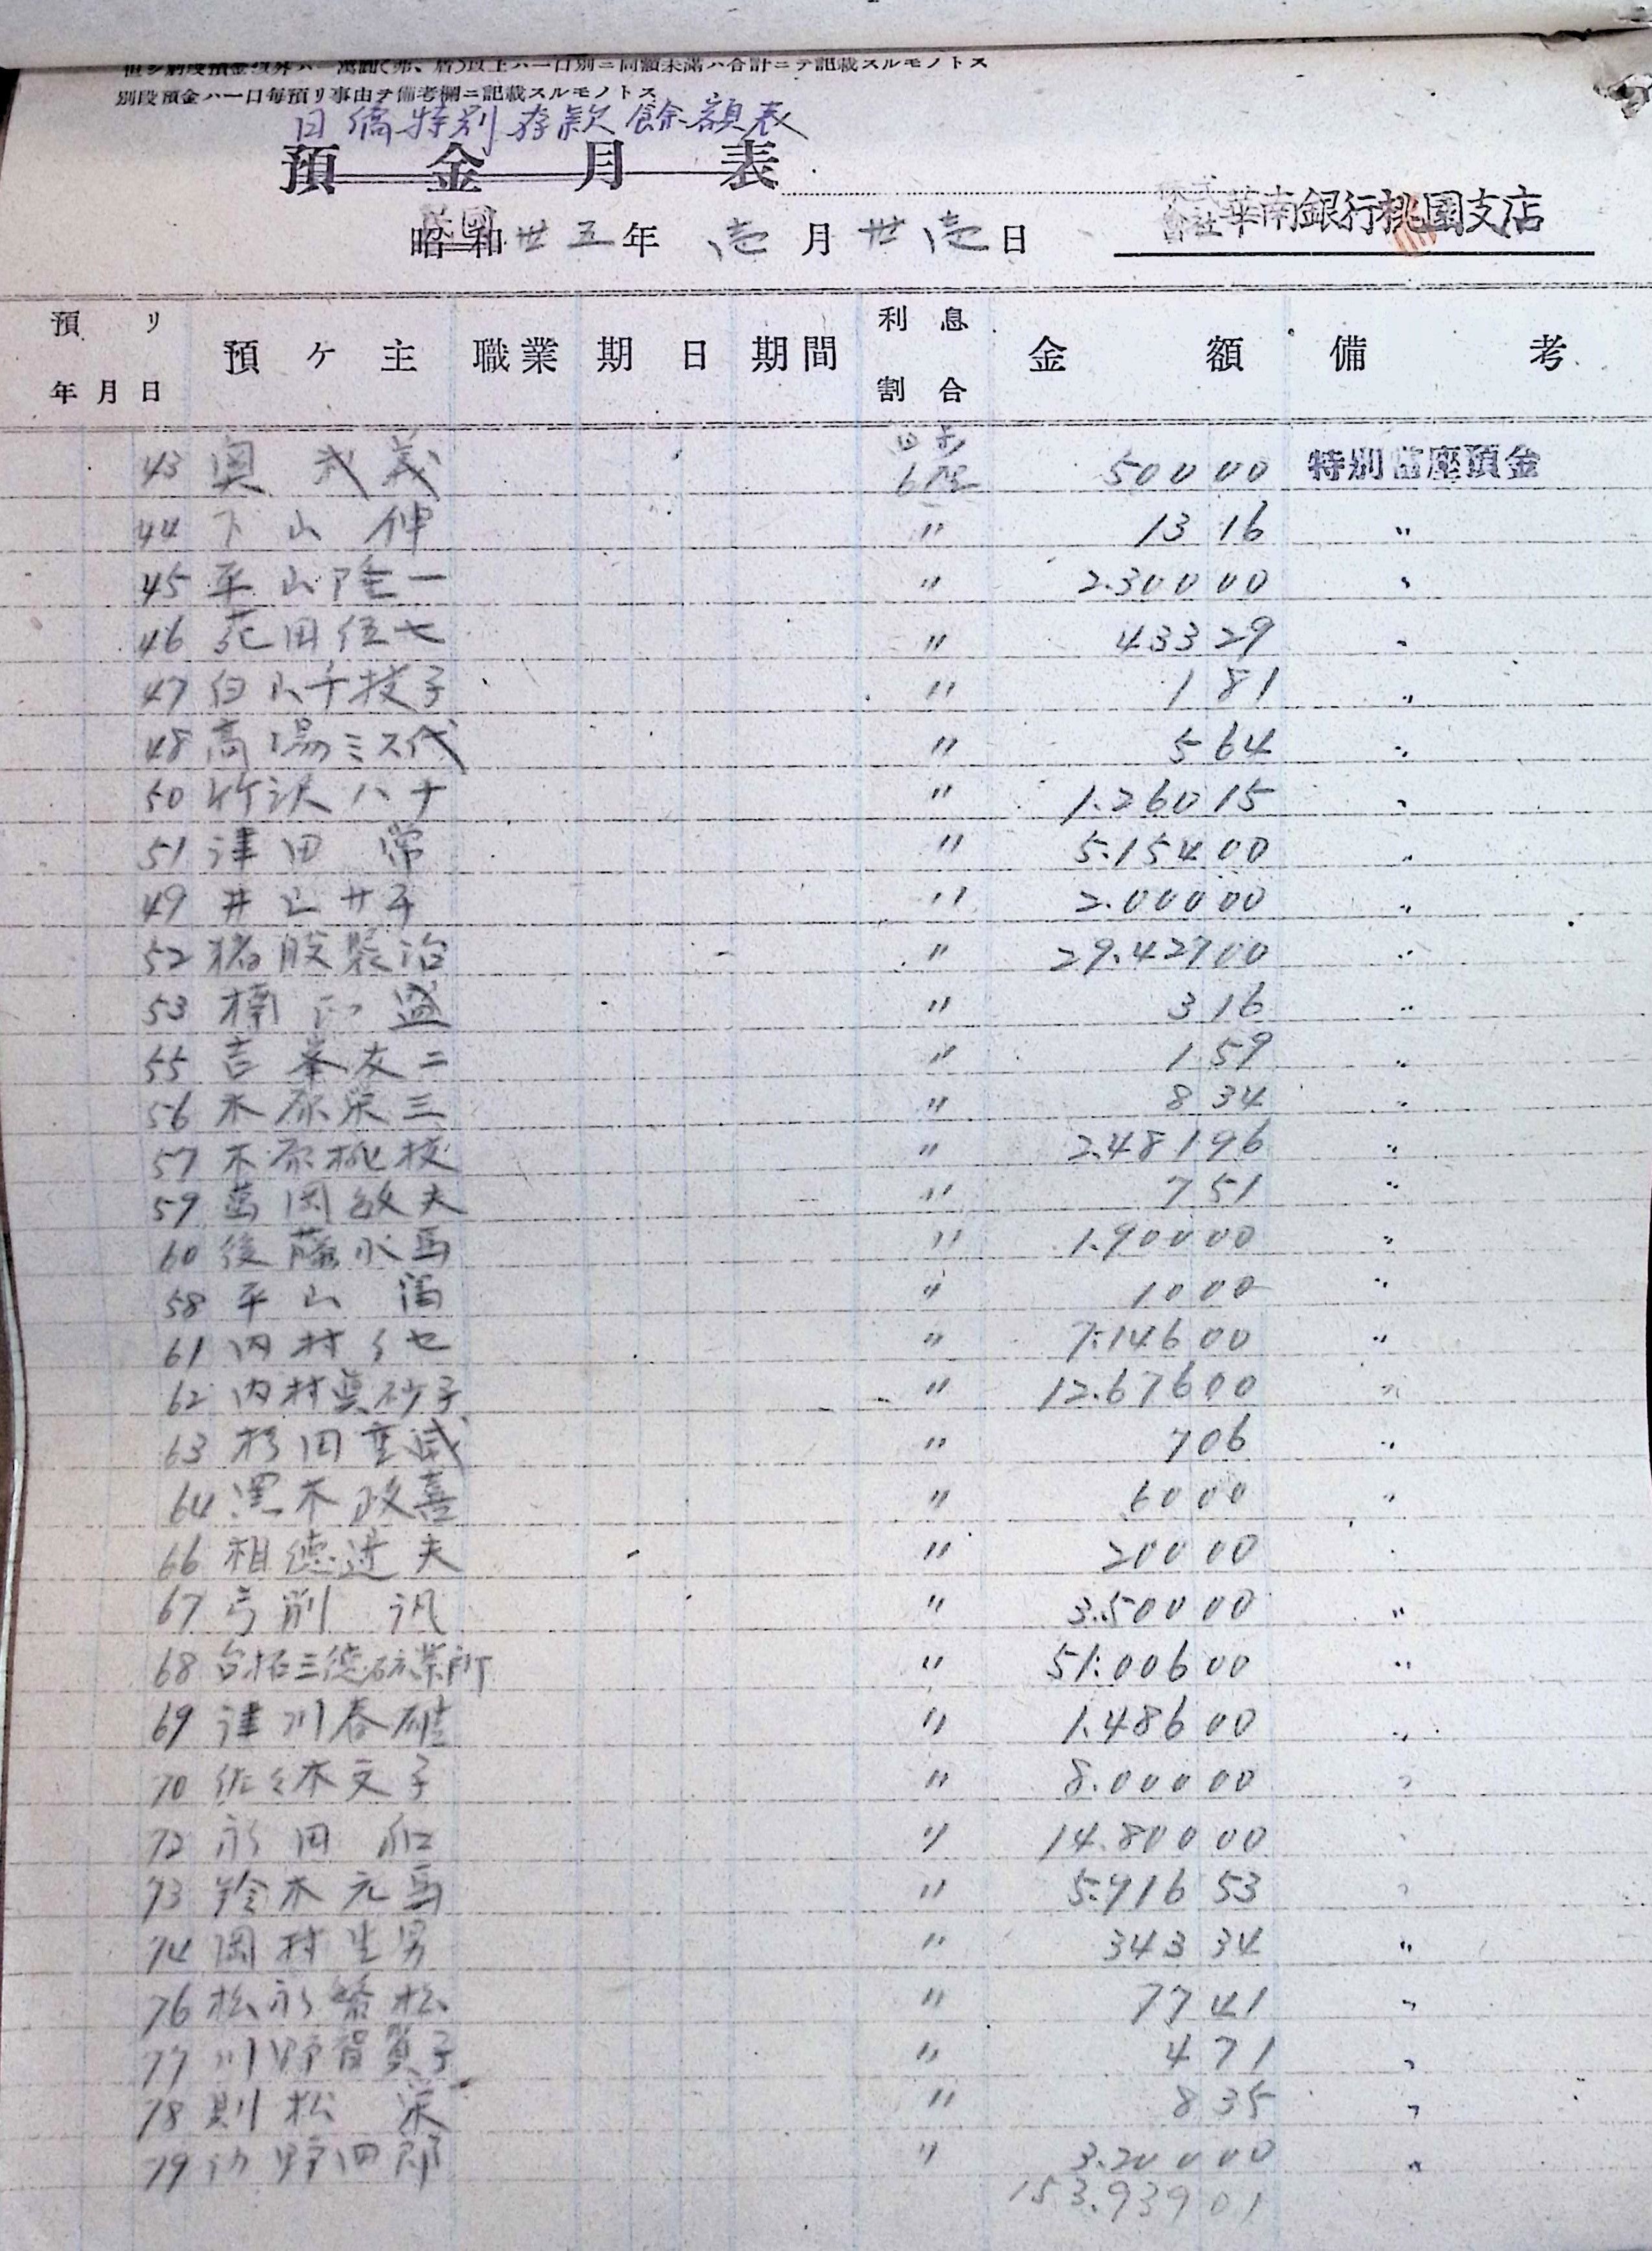 別段預金ハ一口每預リ事由ヲ備考欄ニ記載スルモノトス
日僑特別存款餘額表
預金月表
昭和 卅五年 壱月 卅壱日 株式會社華南銀行桃園支店
預リ年月日 預ケ主 職業 期日 期間 利息割合 金額 備考
43 奥 武義 日歩6厘 500 00 特別當座預金
44 下山 伸 〃 13 16 〃
45 平山隆一 〃 2.300 00 〃
46 花田伍七 〃 433 29 〃
47 白山千枝子 〃 1 81 〃
48 高場ミス代 〃 5 64 〃
50 竹沢ハナ 〃 1.260 15 〃
51 津田 常 〃 5.154 00 〃
49 井上サチ 〃 2.000 00 〃
52 猪股 治 〃 29.427 00 〃
53 楠 盛 〃 3 16 〃
55 吉峯友二 〃 1 59 〃
56 木原栄三 〃 8 34 〃
57 木原桃枝 〃 2.481 96 〃
59 岡敏夫 〃 7 51 〃
60 後藤水馬 〃 1.900 00 〃
58 平山 〃 10 00 〃
61 内村 〃 7.146 00 〃
62 内村真砂子 〃 12.676 00 〃
63 杉田重 〃 7 06 〃
64 黒木政喜 〃 60 00 〃
66 相德近夫 〃 200 00
67 弓削 汎 〃 3.500 00 〃
68 台拓三德砿業所 〃 51.006 00 〃
69 津川春雄 〃 1.486 00 〃
70 佐々木文子 〃 8.000 00 〃
72 永田 和 〃 14.800 00
73 鈴木元馬 〃 5.916 53 〃
74 岡村生男 〃 343 34 〃
76 松永 松 〃 77 41 〃
77 川野賀子 〃 4 71 〃
78 則松 栄 〃 8 35 〃
79 野四郎 〃 3.200 00 〃
153.939 01